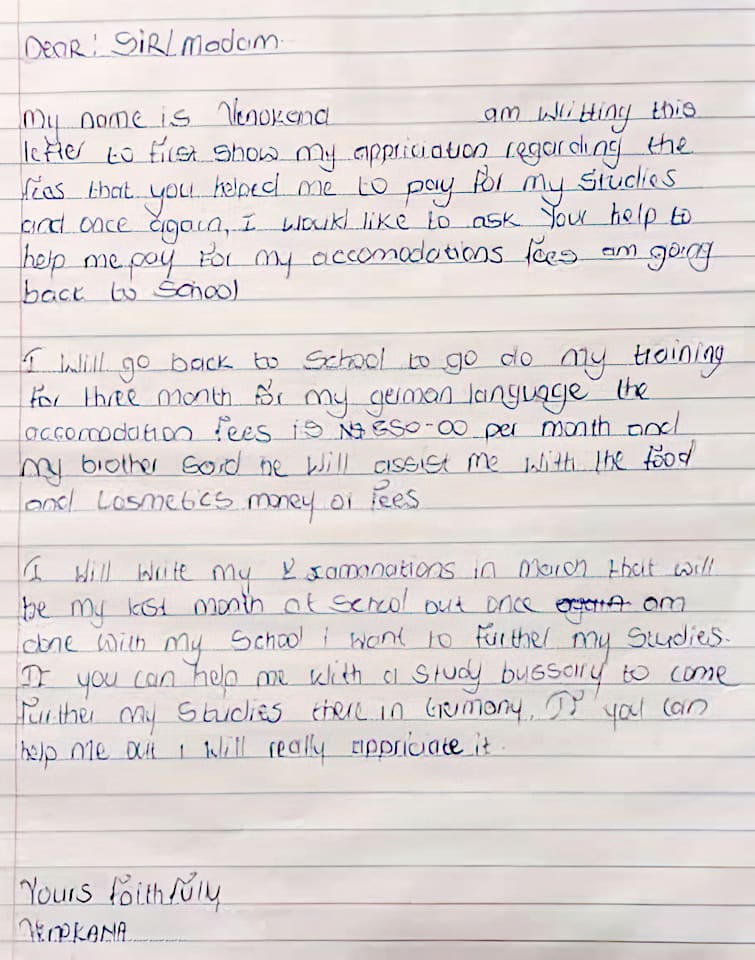 Dear: Sir/Madam.
My name is Venokana am writting this
letter to first show my appriciation regarding the
fees that you helped me to pay for my studies
and once again, I would like to ask Your help to
help me pay for my accomodations fees am going
back to School
I Will go back to School to go do my training
for three month for my german language the
accomodation fees is N$ 650-00 per month and
my brother said he Will assist me with the food
and Cosmetics money or fees
I Will Write my Examanations in March that will
be my last month at School but once again am
done with my School i want to further my Studies.
If you can help me with a Study bussary to come
further my Studies there in Germany, If you can
help me out i will really appriciate it.
Yours faithfully
VENOKANA